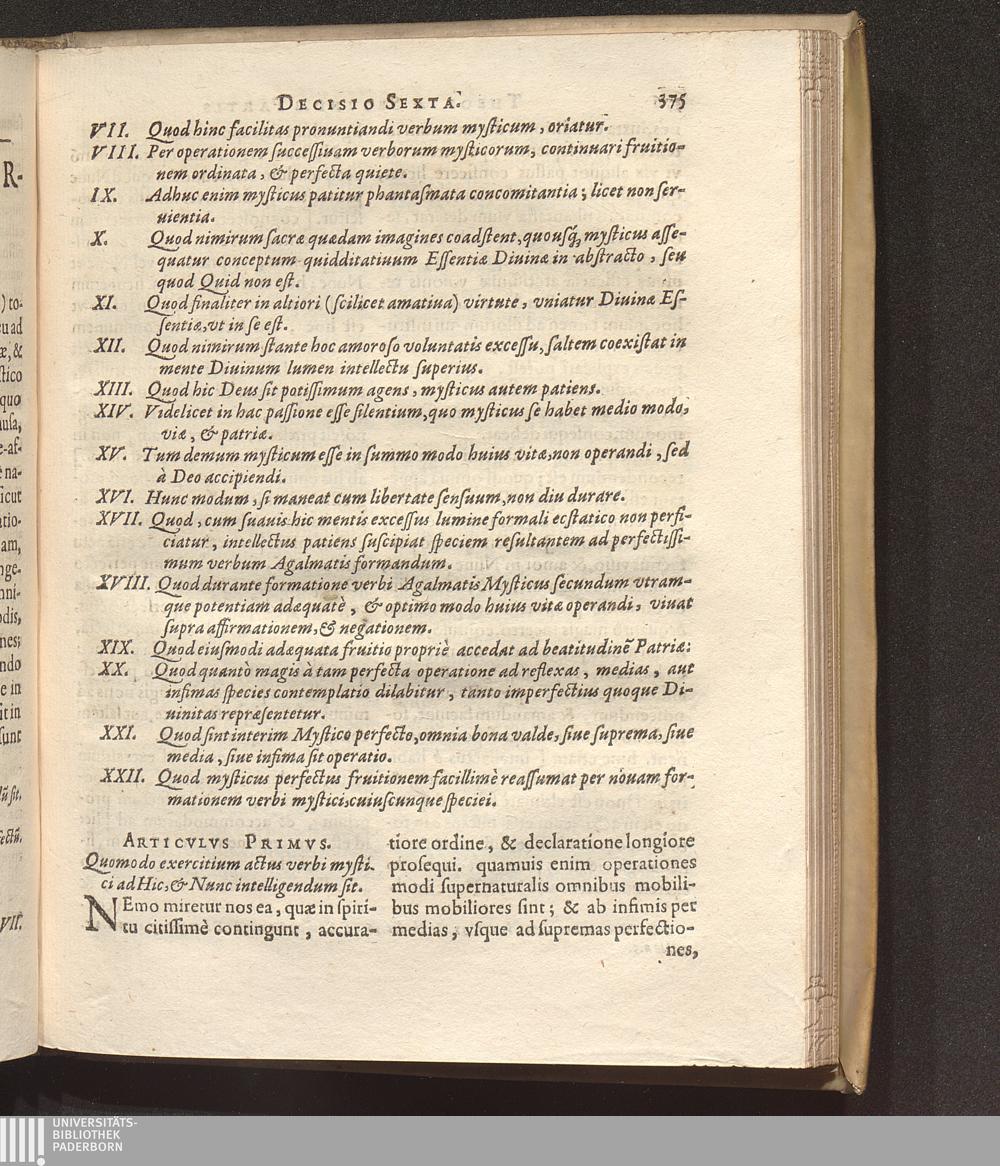 DECISIO SEXTA. 375
VII. Quod hinc facilitas pronuntiandi verbum myſticum, oriatur.
VIII. Per operationem ſucceſſiuam verborum myſticorum, continuari fruitio-
nem ordinata, & perfecta quiete.
IX. Adhuc enim myſticus patitur phantaſmata concomitantia; licet non ſer-
uientia.
X. Quod nimirum ſacræ quædam imagines coadſtent, quouſq́; myſticus aſſe-
quatur conceptum quidditatiuum Eſſentiæ Diuinæ in abſtracto, ſeu
quod Quid non eſt.
XI. Quod finaliter in altiori (ſcilicet amatiua) virtute, vniatur Diuinæ Eſ-
ſentiæ, vt in ſe eſt.
XII. Quod nimirum ſtante hoc amoroſo voluntatis exceſſu, ſaltem coexiſtat in
mente Diuinum lumen intellectu ſuperius.
XIII. Quod hic Deus ſit potiſſimum agens, myſticus autem patiens.
XIV. Videlicet in hac paſſione eſſe ſilentium, quo myſticus ſe habet medio modo,
viæ, & patriæ.
XV. Tum demum myſticum eſſe in ſummo modo huius vitæ, non operandi, ſed
à Deo accipiendi.
XVI. Hunc modum, ſi maneat cum libertate ſenſuum, non diu durare.
XVII. Quod, cum ſuauis hic mentis exceſſus lumine formali ecſtatico non perfi-
ciatur, intellectus patiens ſuſcipiat ſpeciem reſultantem ad perfectiſſi-
mum verbum Agalmatis formandum.
XVIII. Quod durante formatione verbi Agalmatis Myſticus ſecundum vtram-
que potentiam adæquatè, & optimo modo huius vitæ operandi, viuat
ſupra affirmationem, & negationem.
XIX. Quod eiuſmodi adæquata fruitio propriè accedat ad beatitudinē Patriæ:
XX. Quod quantò magis à tam perfecta operatione ad reflexas, medias, aut
infimas ſpecies contemplatio dilabitur, tanto imperfectius quoque Di-
uinitas repræſentetur.
XXI. Quod ſint interim Myſtico perfecto, omnia bona valde, ſiue ſuprema, ſiue
media, ſiue infima ſit operatio.
XXII. Quod myſticus perfectus fruitionem facillimè reaſſumat per nouam for-
mationem verbi myſtici, cuiuſcunque ſpeciei.
ARTICVLVS PRIMVS.
Quomodo exercitium actus verbi myſti-
ci ad Hic, & Nunc intelligendum ſit.
NEmo miretur nos ea, quæ in ſpiri-
tu citiſſimè contingunt, accura-
tiore ordine, & declaratione longiore
proſequi. quamuis enim operationes
modi ſupernaturalis omnibus mobili-
bus mobiliores ſint; & ab infimis per
medias, vſque ad ſupremas perfectio-
nes,
R-
) to-
eu ad
æ, &
ſtico
quo
ſicut
atio-
am,
nes;
ndo
e in
it in
ſunt
VII.
UNIVERSITÄTS-
BIBLIOTHEK
PADERBORN